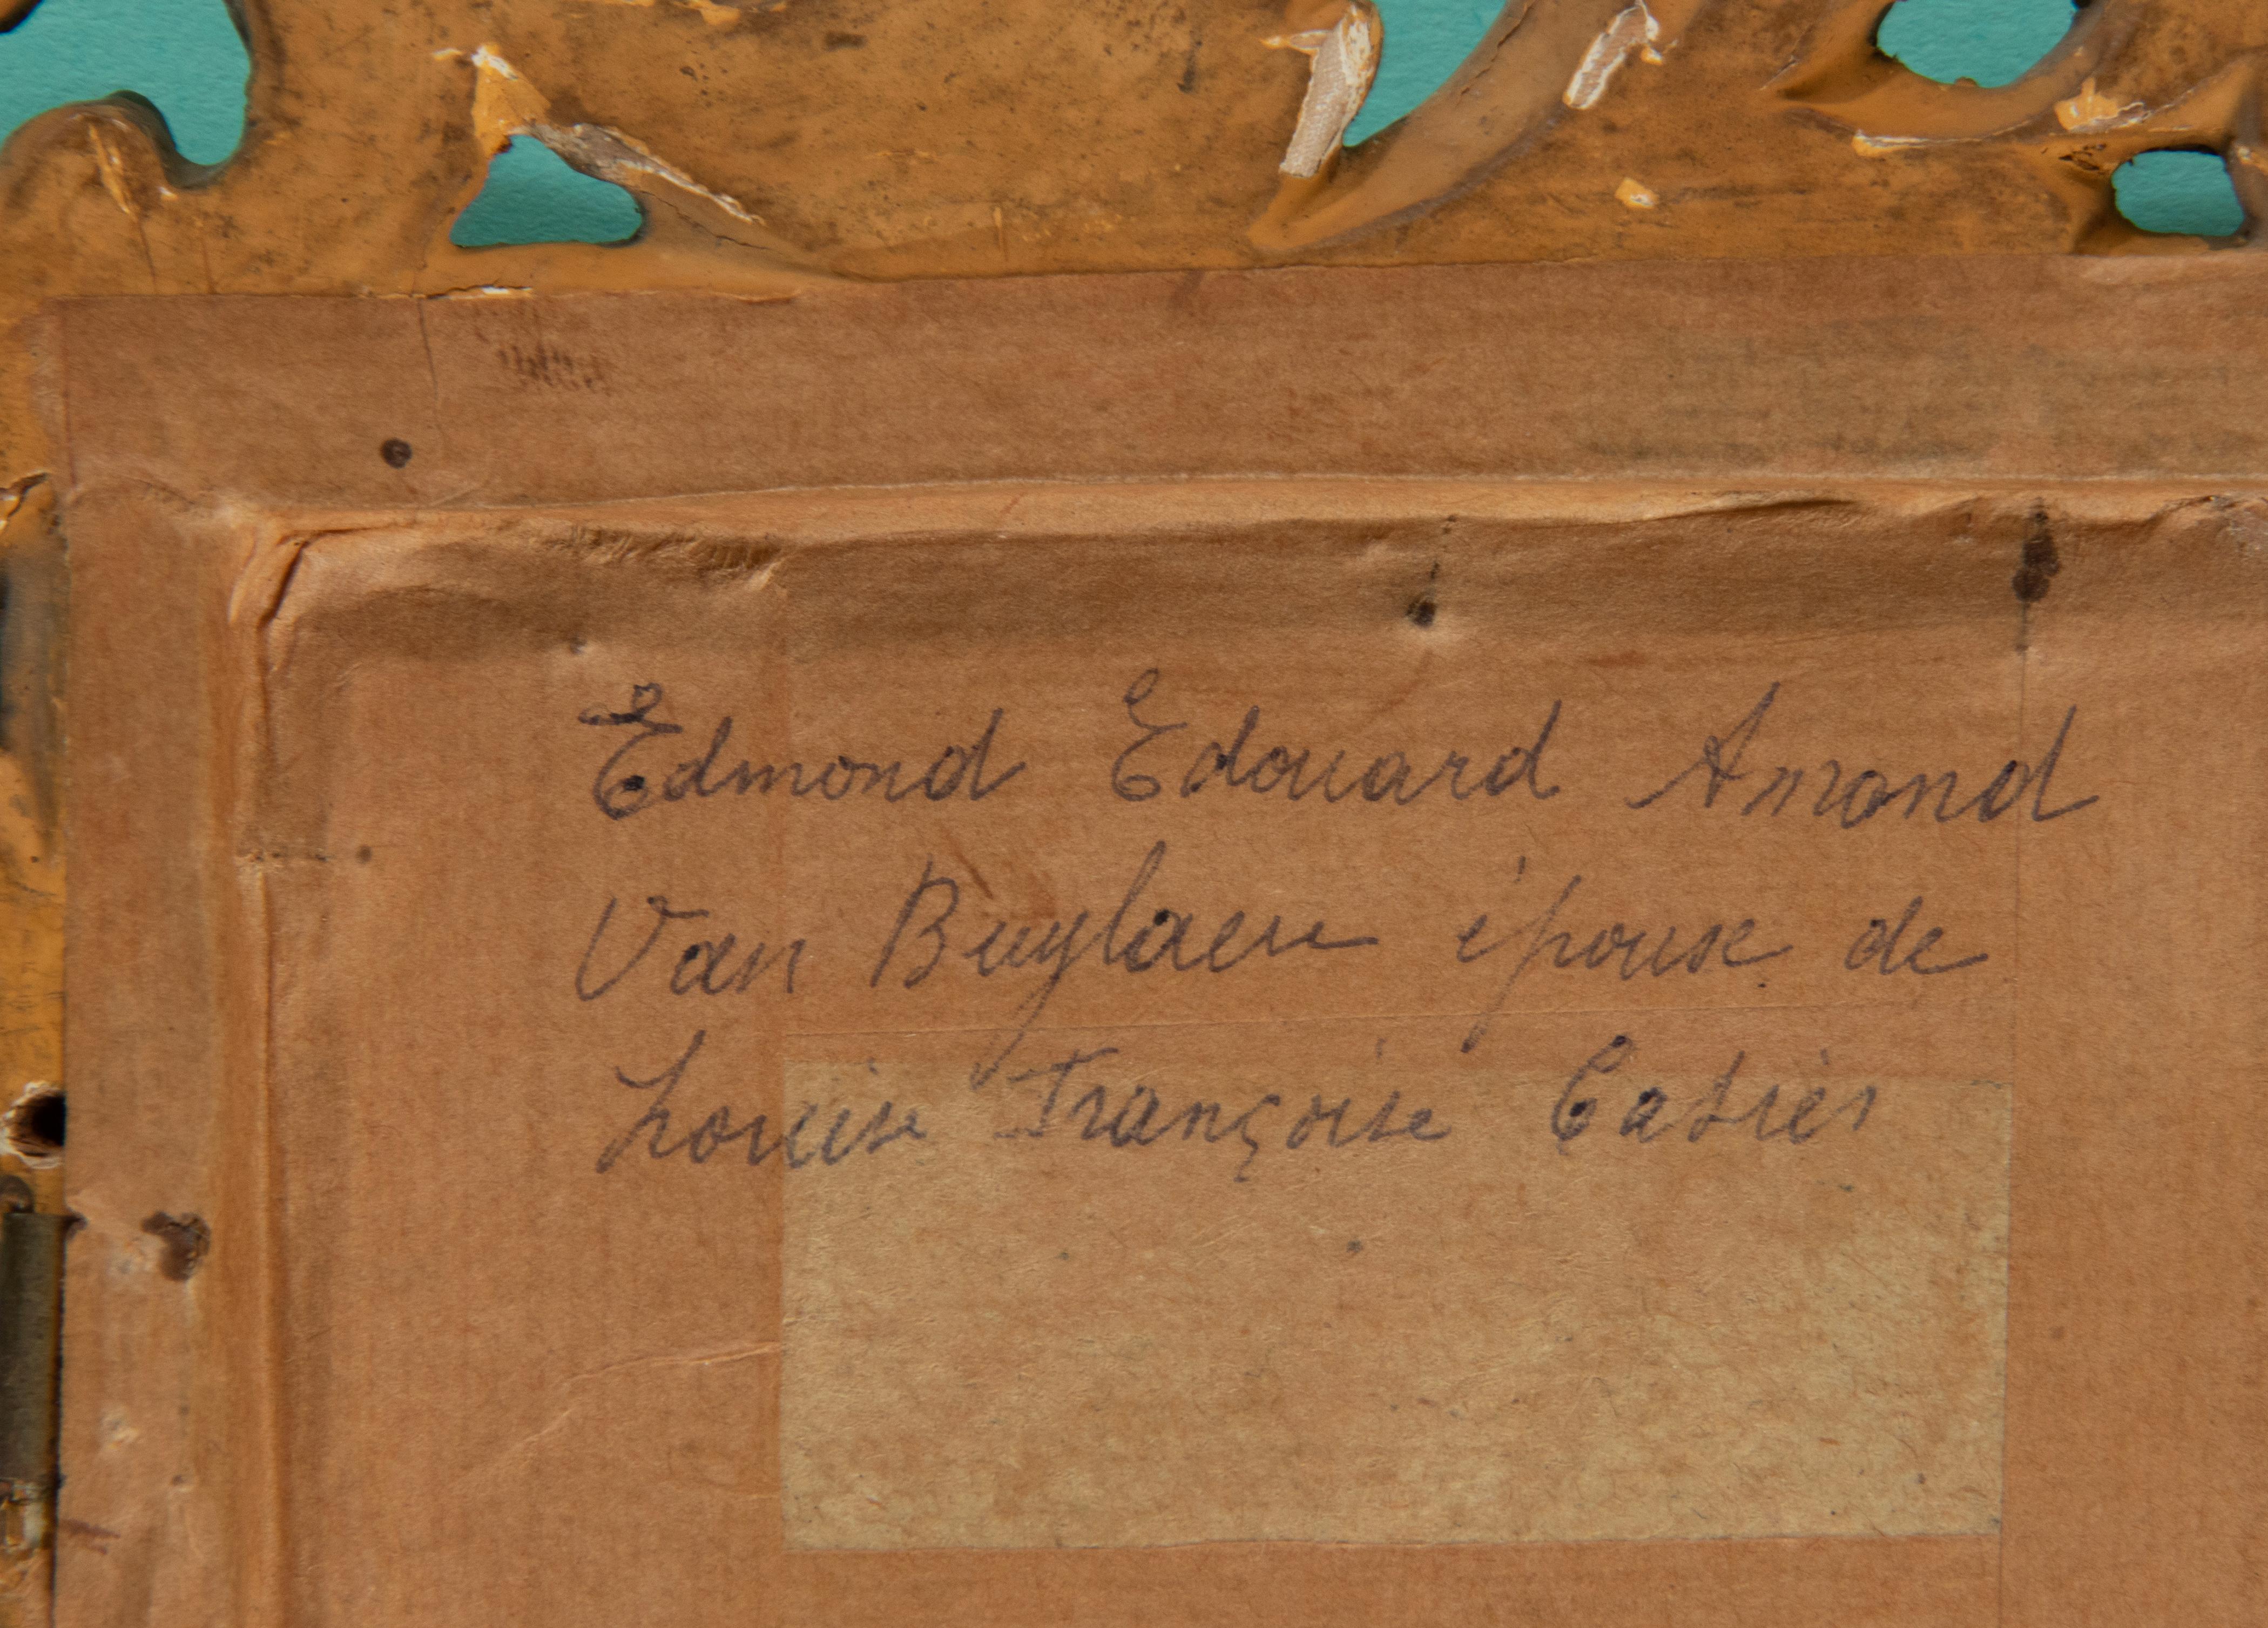 Edmond Edouard Amand
Van Buylaere épouse de
Louise Françoise Casier